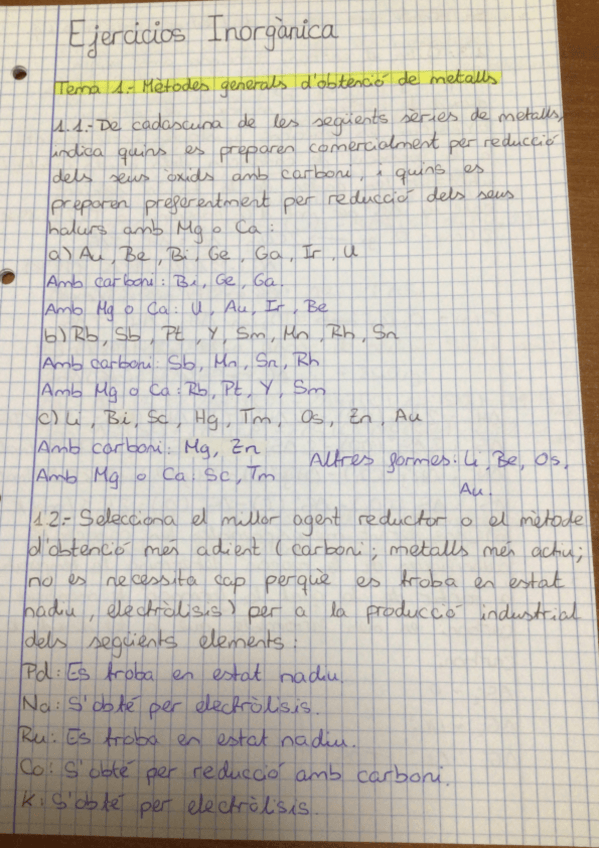 Ejercicios Inorgànica
Tema 1.- Mètodes generals d'obtenció de metalls
1.1.- De cadascuna de les següents sèries de metalls,
indica quins es preparen comercialment per reducció
dels seus òxids amb carboni, i quins es
preparen preferentment per reducció dels seus
halurs amb Mg o Ca:
a) Au, Be, Bi, Ge, Ga, Ir, U
Amb carboni: Bi, Ge, Ga.
Amb Mg o Ca: U, Au, Ir, Be
b) Rb, Sb, Pt, Y, Sm, Mn, Rh, Sn
Amb carboni: Sb, Mn, Sn, Rh
Amb Mg o Ca: Rb, Pt, Y, Sm
c) Li, Bi, Sc, Hg, Tm, Os, Zn, Au
Amb carboni: Mg, Zn
Amb Mg o Ca: Sc, Tm
Altres formes: Li, Be, Os,
Au.
1.2.- Selecciona el millor agent reductor o el mètode
d'obtenció més adient (carboni; metalls més actiu;
no es necessita cap perquè es troba en estat
nadiu, electròlisis) per a la producció industrial
dels següents elements:
Pd: Es troba en estat nadiu.
Na: S'obté per electròlisis.
Ru: Es troba en estat nadiu.
Co: S'obté per reducció amb carboni.
K: S'obté per electròlisis.